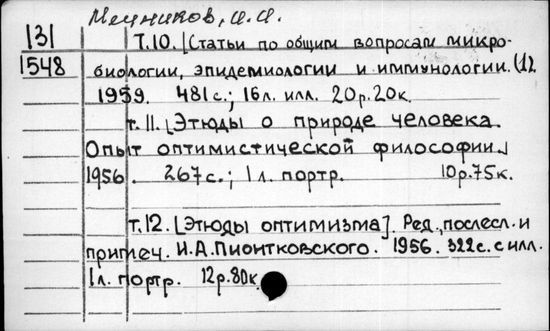 Мечников, И.И.
131
1548
Т.10. [Статьи по общим вопросам микро-
биологии, эпидемиологии и иммунологии. (12
1959. 481 с.; 16 л. илл. 20р.20к.
т. 11. [Этюды о природе человека.
Опыт оптимистической философии.]
1956. 267 с.; 1 л. портр. 10р.75к.
т.12. [Этюды оптимизма]. Ред., послесл. и
примеч. И.А.Пионтковского. 1956. 322 с. с илл.
1 л. портр. 12р.80к.